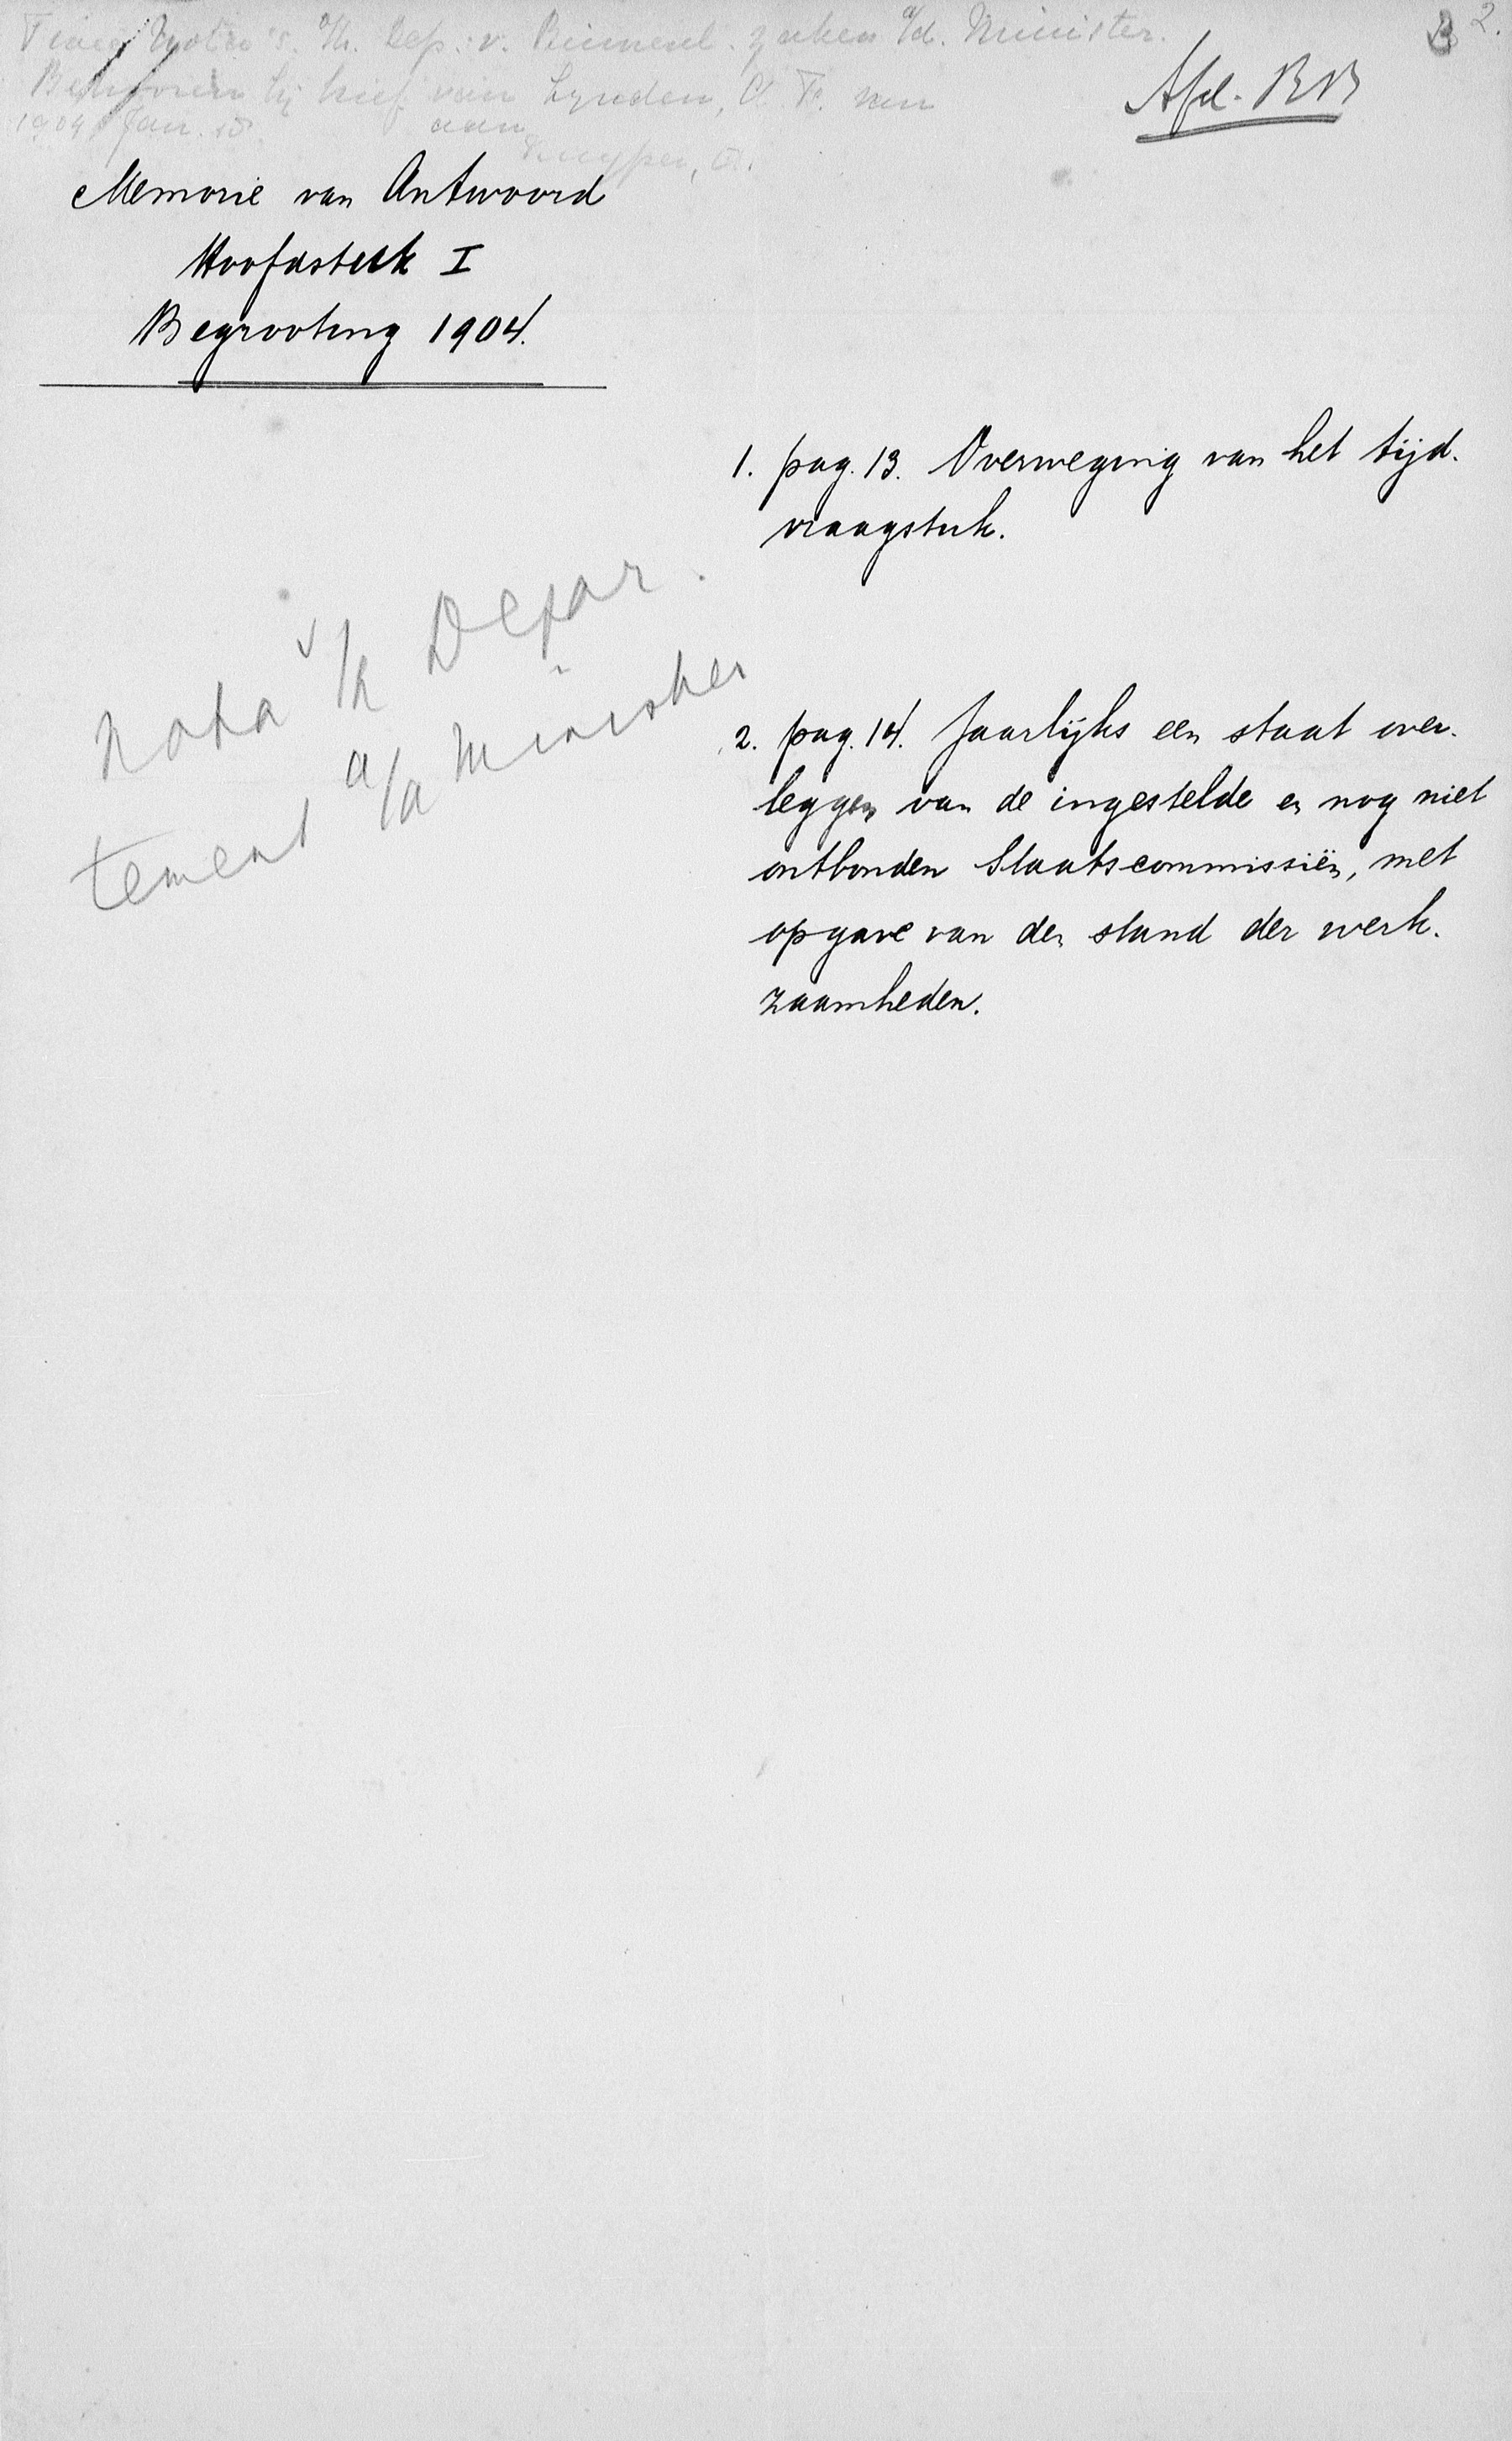 Twee Nota's v/h. Dep. v. Binnenl. Zaken a/d. Minister.
Behooren bij brief van Lynden, van
1904 Jan. 15 aan
Kuyper, A.
2.
Afd. BB
Memorie van Antwoord
Hoofdstuk I
Begrooting 1904.
1. pag. 13. Overweging van het tijd-
vraagstuk.
Nota v/h Depar-
tement a/d Minister
2. pag. 14. Jaarlijks een staat over-
leggen van de ingestelde en nog niet
ontbonden Staatscommissiën, met
opgave van den stand der werk-
zaamheden.